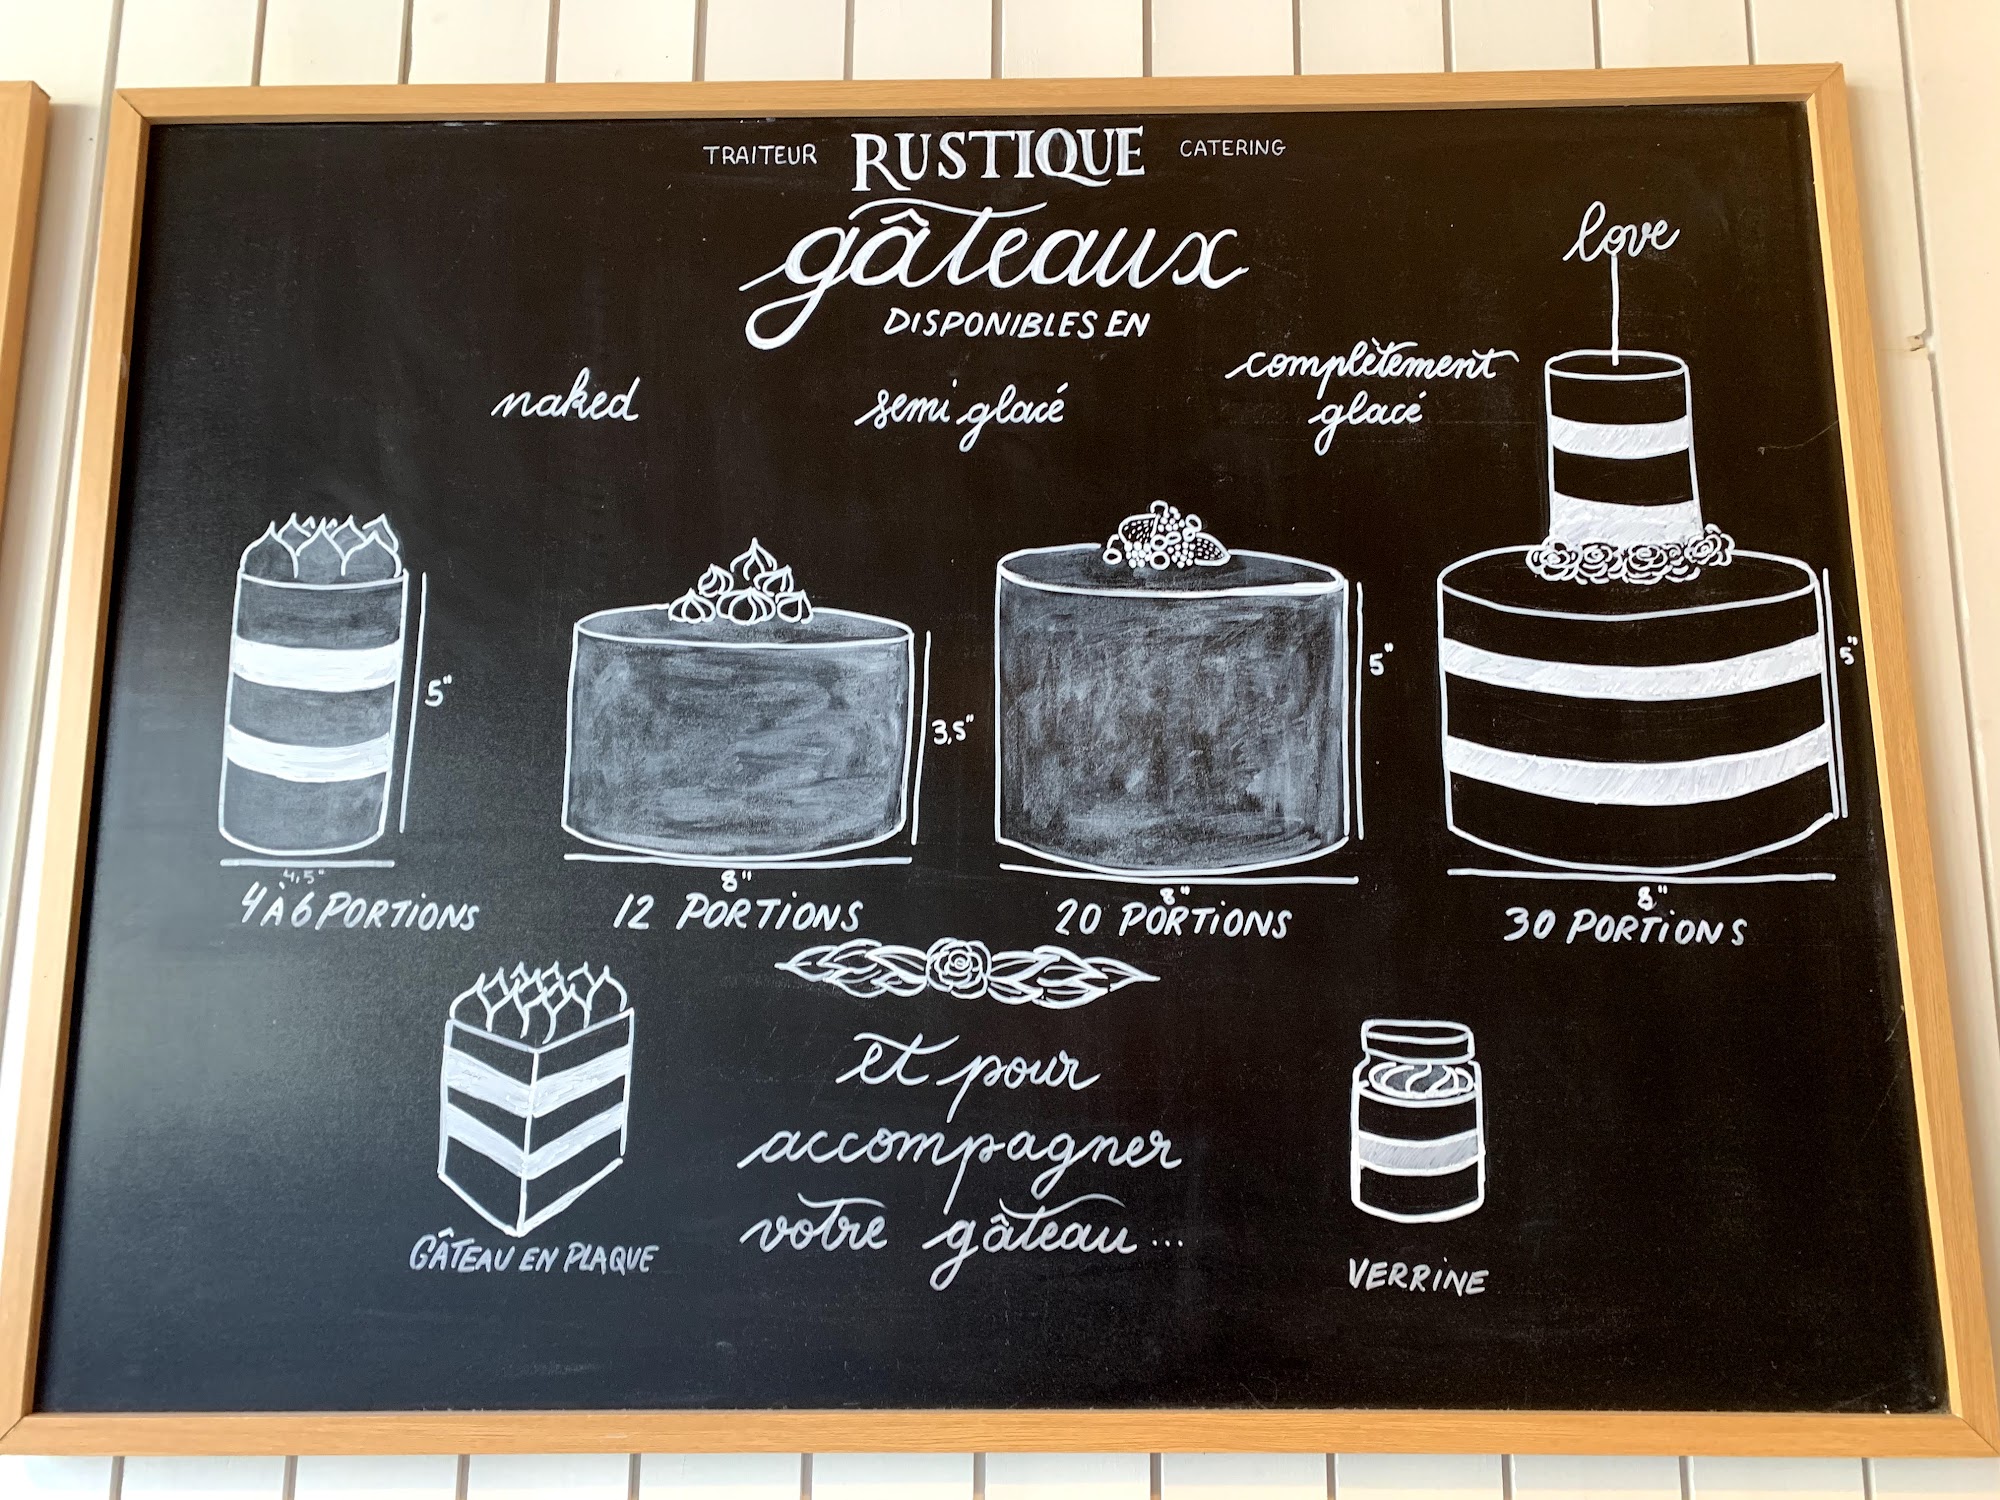 TRAITEUR RUSTIQUE CATERING
gâteaux
DISPONIBLES EN
love
naked
semi glacé
complètement
glacé
5"
3,5"
5"
5"
4,5"
8"
8"
8"
4 À 6 PORTIONS
12 PORTIONS
20 PORTIONS
30 PORTIONS
et pour
accompagner
votre gâteau...
GÂTEAU EN PLAQUE
VERRINE